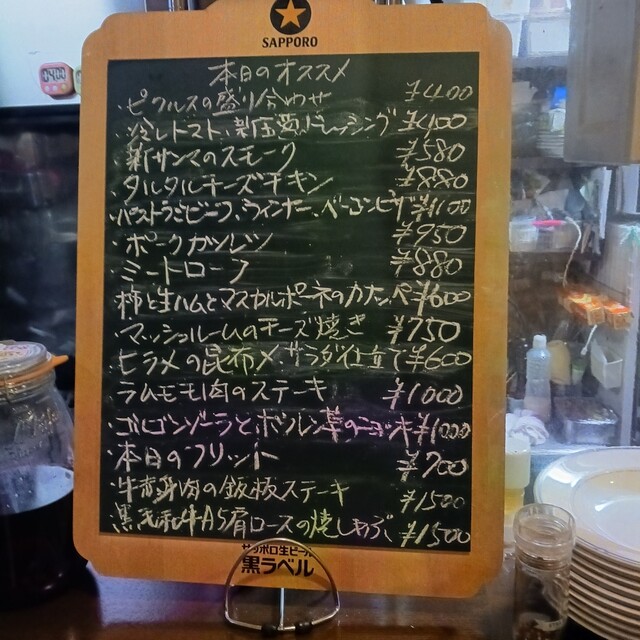 SAPPORO
本日のオススメ
・ピクルスの盛り合わせ ¥400
・冷しトマト、新玉葱ドレッシング ¥400
・新サンマのスモーク ¥580
・タルタルチーズチキン ¥880
・パストラミビーフ、ウィンナー、ベーコンピザ ¥1100
・ポークカツレツ ¥950
・ミートローフ ¥880
・柿と生ハムとマスカルポーネのカナッペ ¥600
・マッシュルームのチーズ焼き ¥750
・ヒラメの昆布〆 サラダ仕立て ¥600
・ラムモモ肉のステーキ ¥1000
・ゴルゴンゾーラとホウレン草のニョッキ ¥1000
・本日のフリット ¥700
・牛赤身肉の鉄板ステーキ ¥1500
・黒毛和牛A5肩ロースの焼しゃぶ ¥1500
サッポロ生ビール
黒ラベル